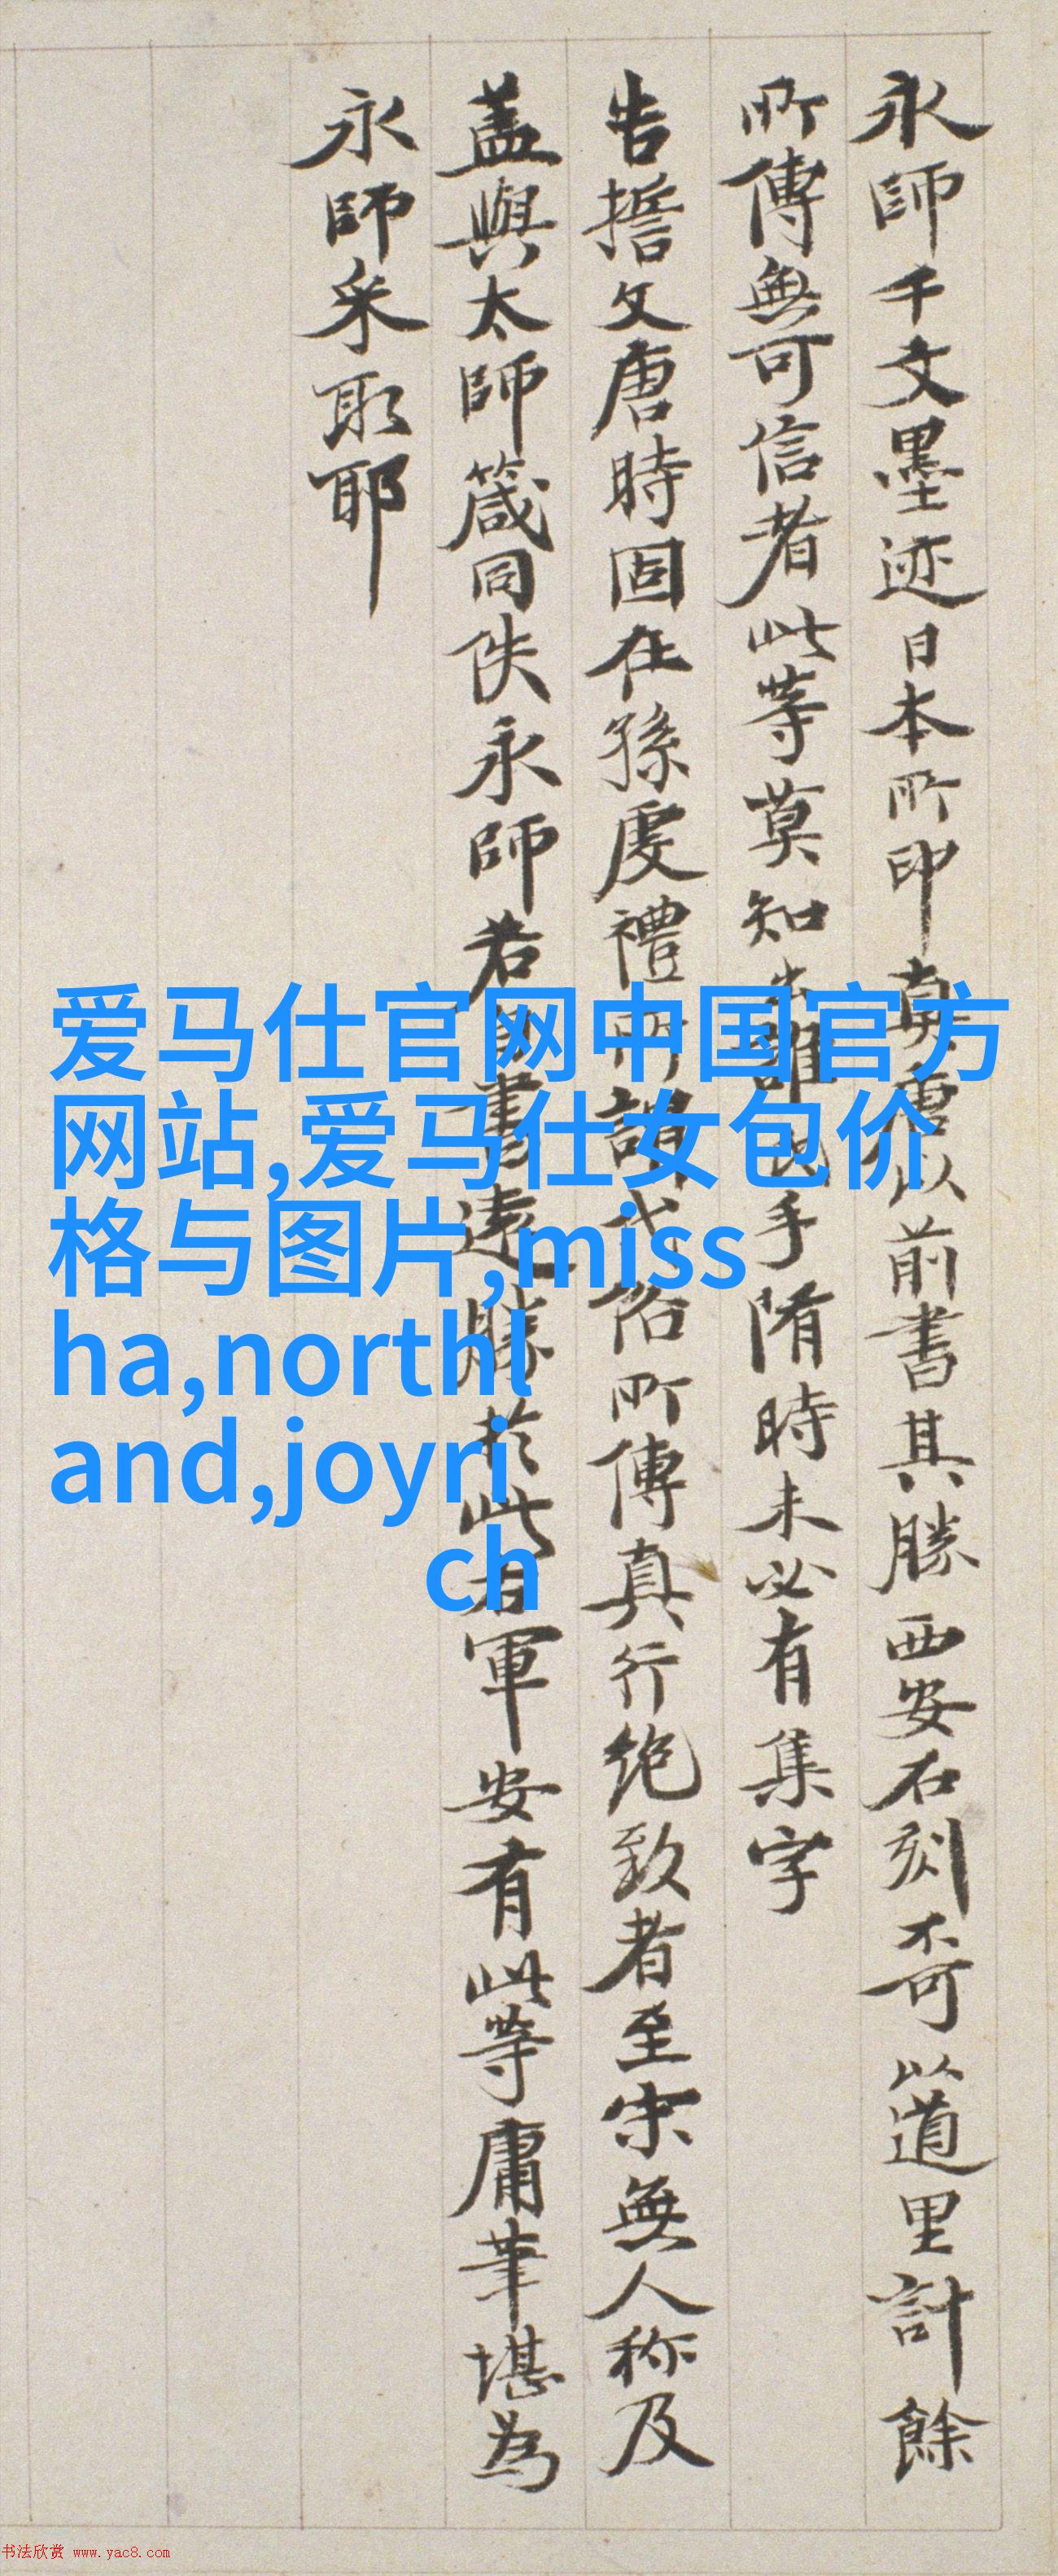 永師千文墨迹日本所印真唐以前書其勝西安石刻不可以道里計餘
所傳無可信者此等莫知出誰氏手隋時未必有集字
告誓文唐時固在孫虔禮所謂代俗所傳真行絕致者至宋無人称及
蓋與太師箴同佚永師若書遠勝於此右軍安有此等庸筆堪為
永師采取耶
爱马仕官网中国官方
网站,爱马仕女包价
格与图片,miss
ha,northl
and,joyri
ch
书法欣赏 www.yac8.com